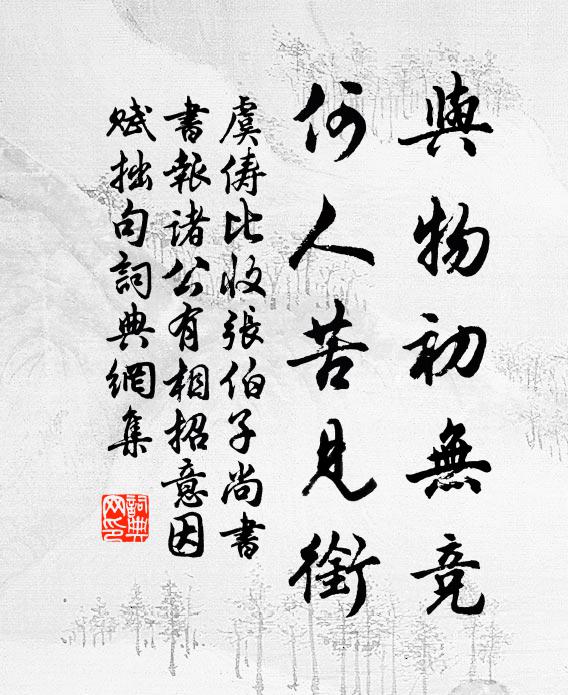 與物初無竞
何人苦見銜
虞儔比收張伯子尚書
書報諸公有相招意因
賦拙句詞典網集
詞典
网印